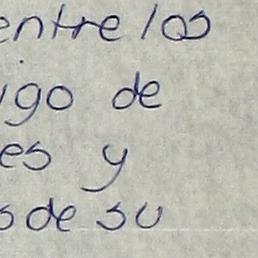 entre los
igo de
es y
s de su